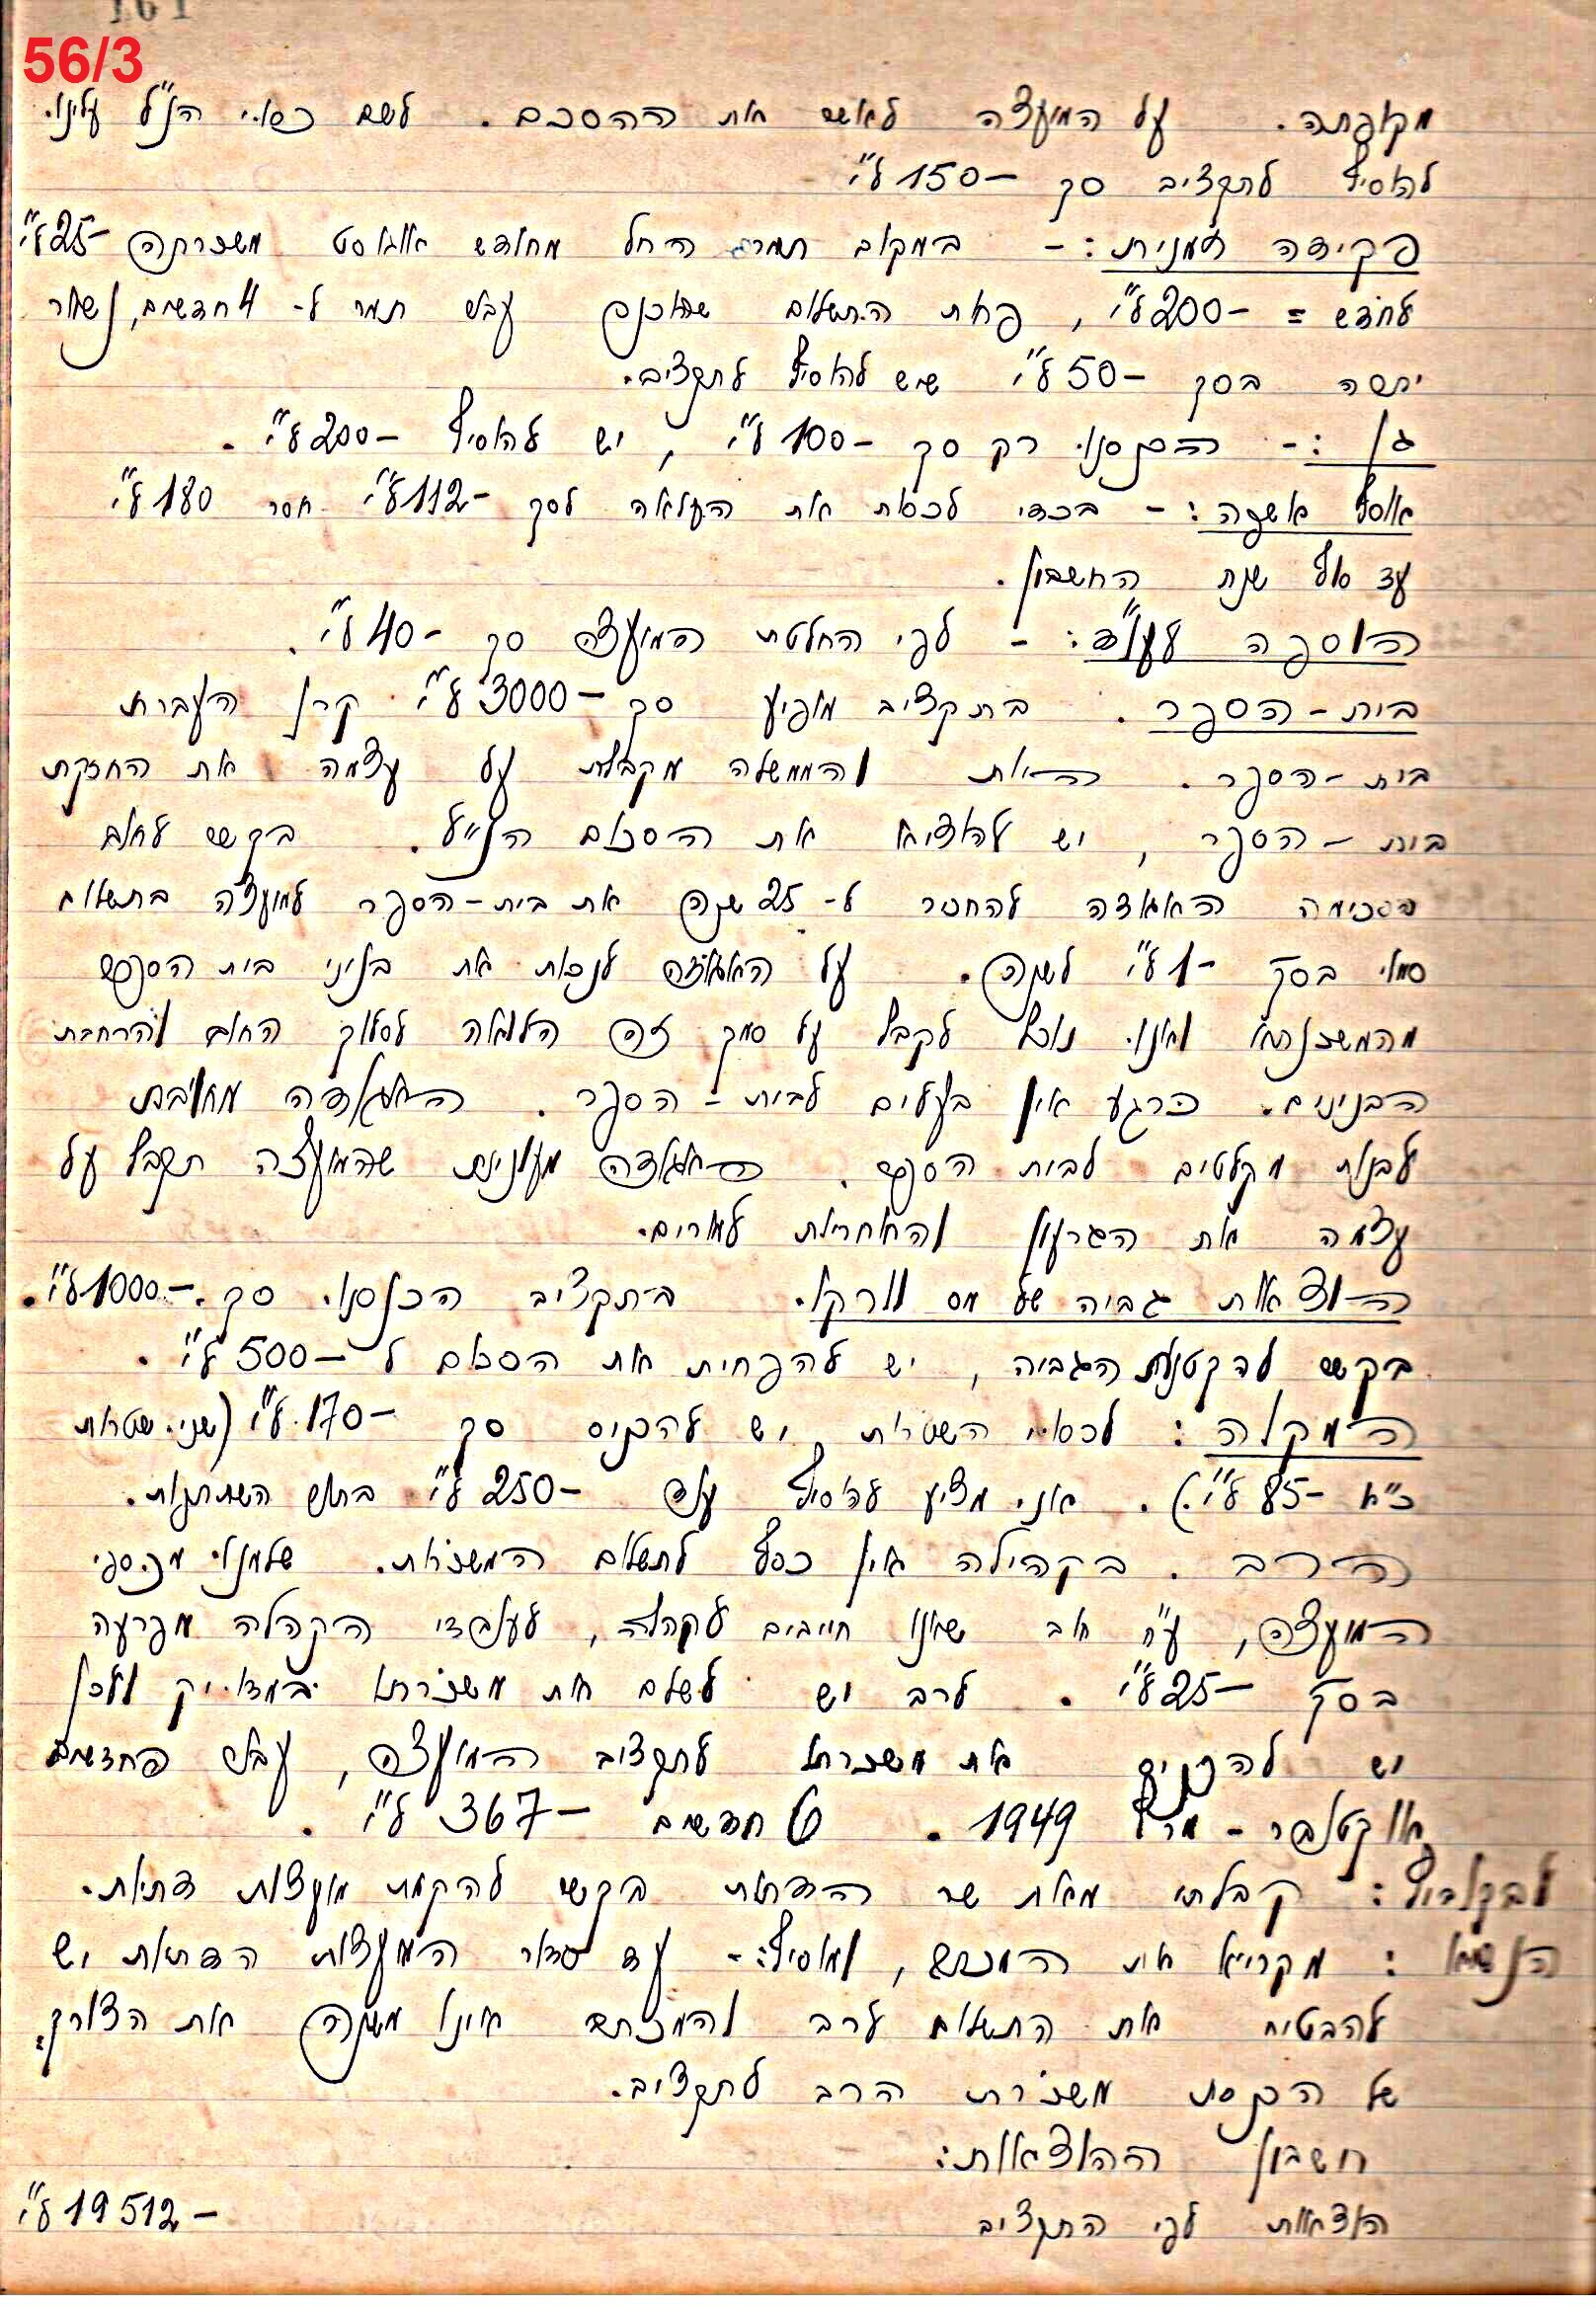 161
56/3
מקופתה. על המועצה לאשר את ההסכם. לשם כסוי הנ"ל עלינו
להוסיף לתקציב סך 150.– ל"י
פקידה זמנית:– במקום תמר החל מחודש אוגוסט משכורתה 25.– ל"י
לחודש = 200.– ל"י, פחות התשלום שהוכנס עבור תמר ל- 4 חדשים, נשאר
יתרה בסך 50.– ל"י שיש להוסיף לתקציב.
גן:– הכנסנו רק סך 100.– ל"י, יש להוסיף 200.– ל"י.
אוסף אשפה:– בכדי לכסות את הלואה לסך 112.– ל"י חסר 180 ל"י
עד סוף שנת החשבון.
הוספה:– לפי החלטת המועצה סך 40.– ל"י.
בית-הספר. בתקציב מופיע סך 3000.– ל"י קרן העברת
בית-הספר. היות והממשלה מקבלת על עצמה את החזקת
בית-הספר, יש להוציא את הסכום הנ"ל. בקשר לחוב
הסכימה האגודה להחכיר ל- 25 שנה את בית-הספר למועצה בתשלום
סמלי בסך 1.– ל"י לשנה. על האגודה לנכות את בניני בית הספר
מהמשכנתא ואנו נוכל לקבל על סמך זה הלואה לסלוק החוב והרחבת
הבנינים. כרגע אין בעלים לבית-הספר. האגודה מחויבת
לבנות מקלטים לבית הספר. האגודה מעונינת שהמועצה תקבל על
עצמה את הגרעון והאחריות למורים.
הוצאות גביה של מס ורקו. בתקציב הכנסנו סך 1000.– ל"י.
בקשר להקטנת הגביה, יש להפחית את הסכום ל 500.– ל"י.
המקוה: לכסוי השטרות יש להכניס סך 170.– ל"י (שני שטרות
כ"א 85.– ל"י). אני מציע להוסיף עוד 250.– ל"י בתור השתתפות.
הרב. בקהילה אין כסף לתשלום המשכורת. שלמנו מכספי
המועצה, ע"ח חוב שאנו חייבים לקהלה, לעובדי הקהלה מפרעה
בסך 25.– ל"י. לרב יש לשלם את משכורתו במדוייק ולכן
יש להכניס את משכורתו לתקציב המועצה, עבור החדשים
אוקטובר - מרץ 1949. 6 חדשים 367.– ל"י.
קבלתי מאת שר הדתות בקשר להקמת מועצות דתיות.
הנשיא: מקריא את המכתב, ומוסיף:– עד סדור המועצות הדתיות יש
להבטיח את התשלום לרב והמכתב אינו משנה את הצורך
של הכנסת משכורת הרב לתקציב.
חשבון ההוצאות:
הוצאות לפי התקציב 19512.– ל"י